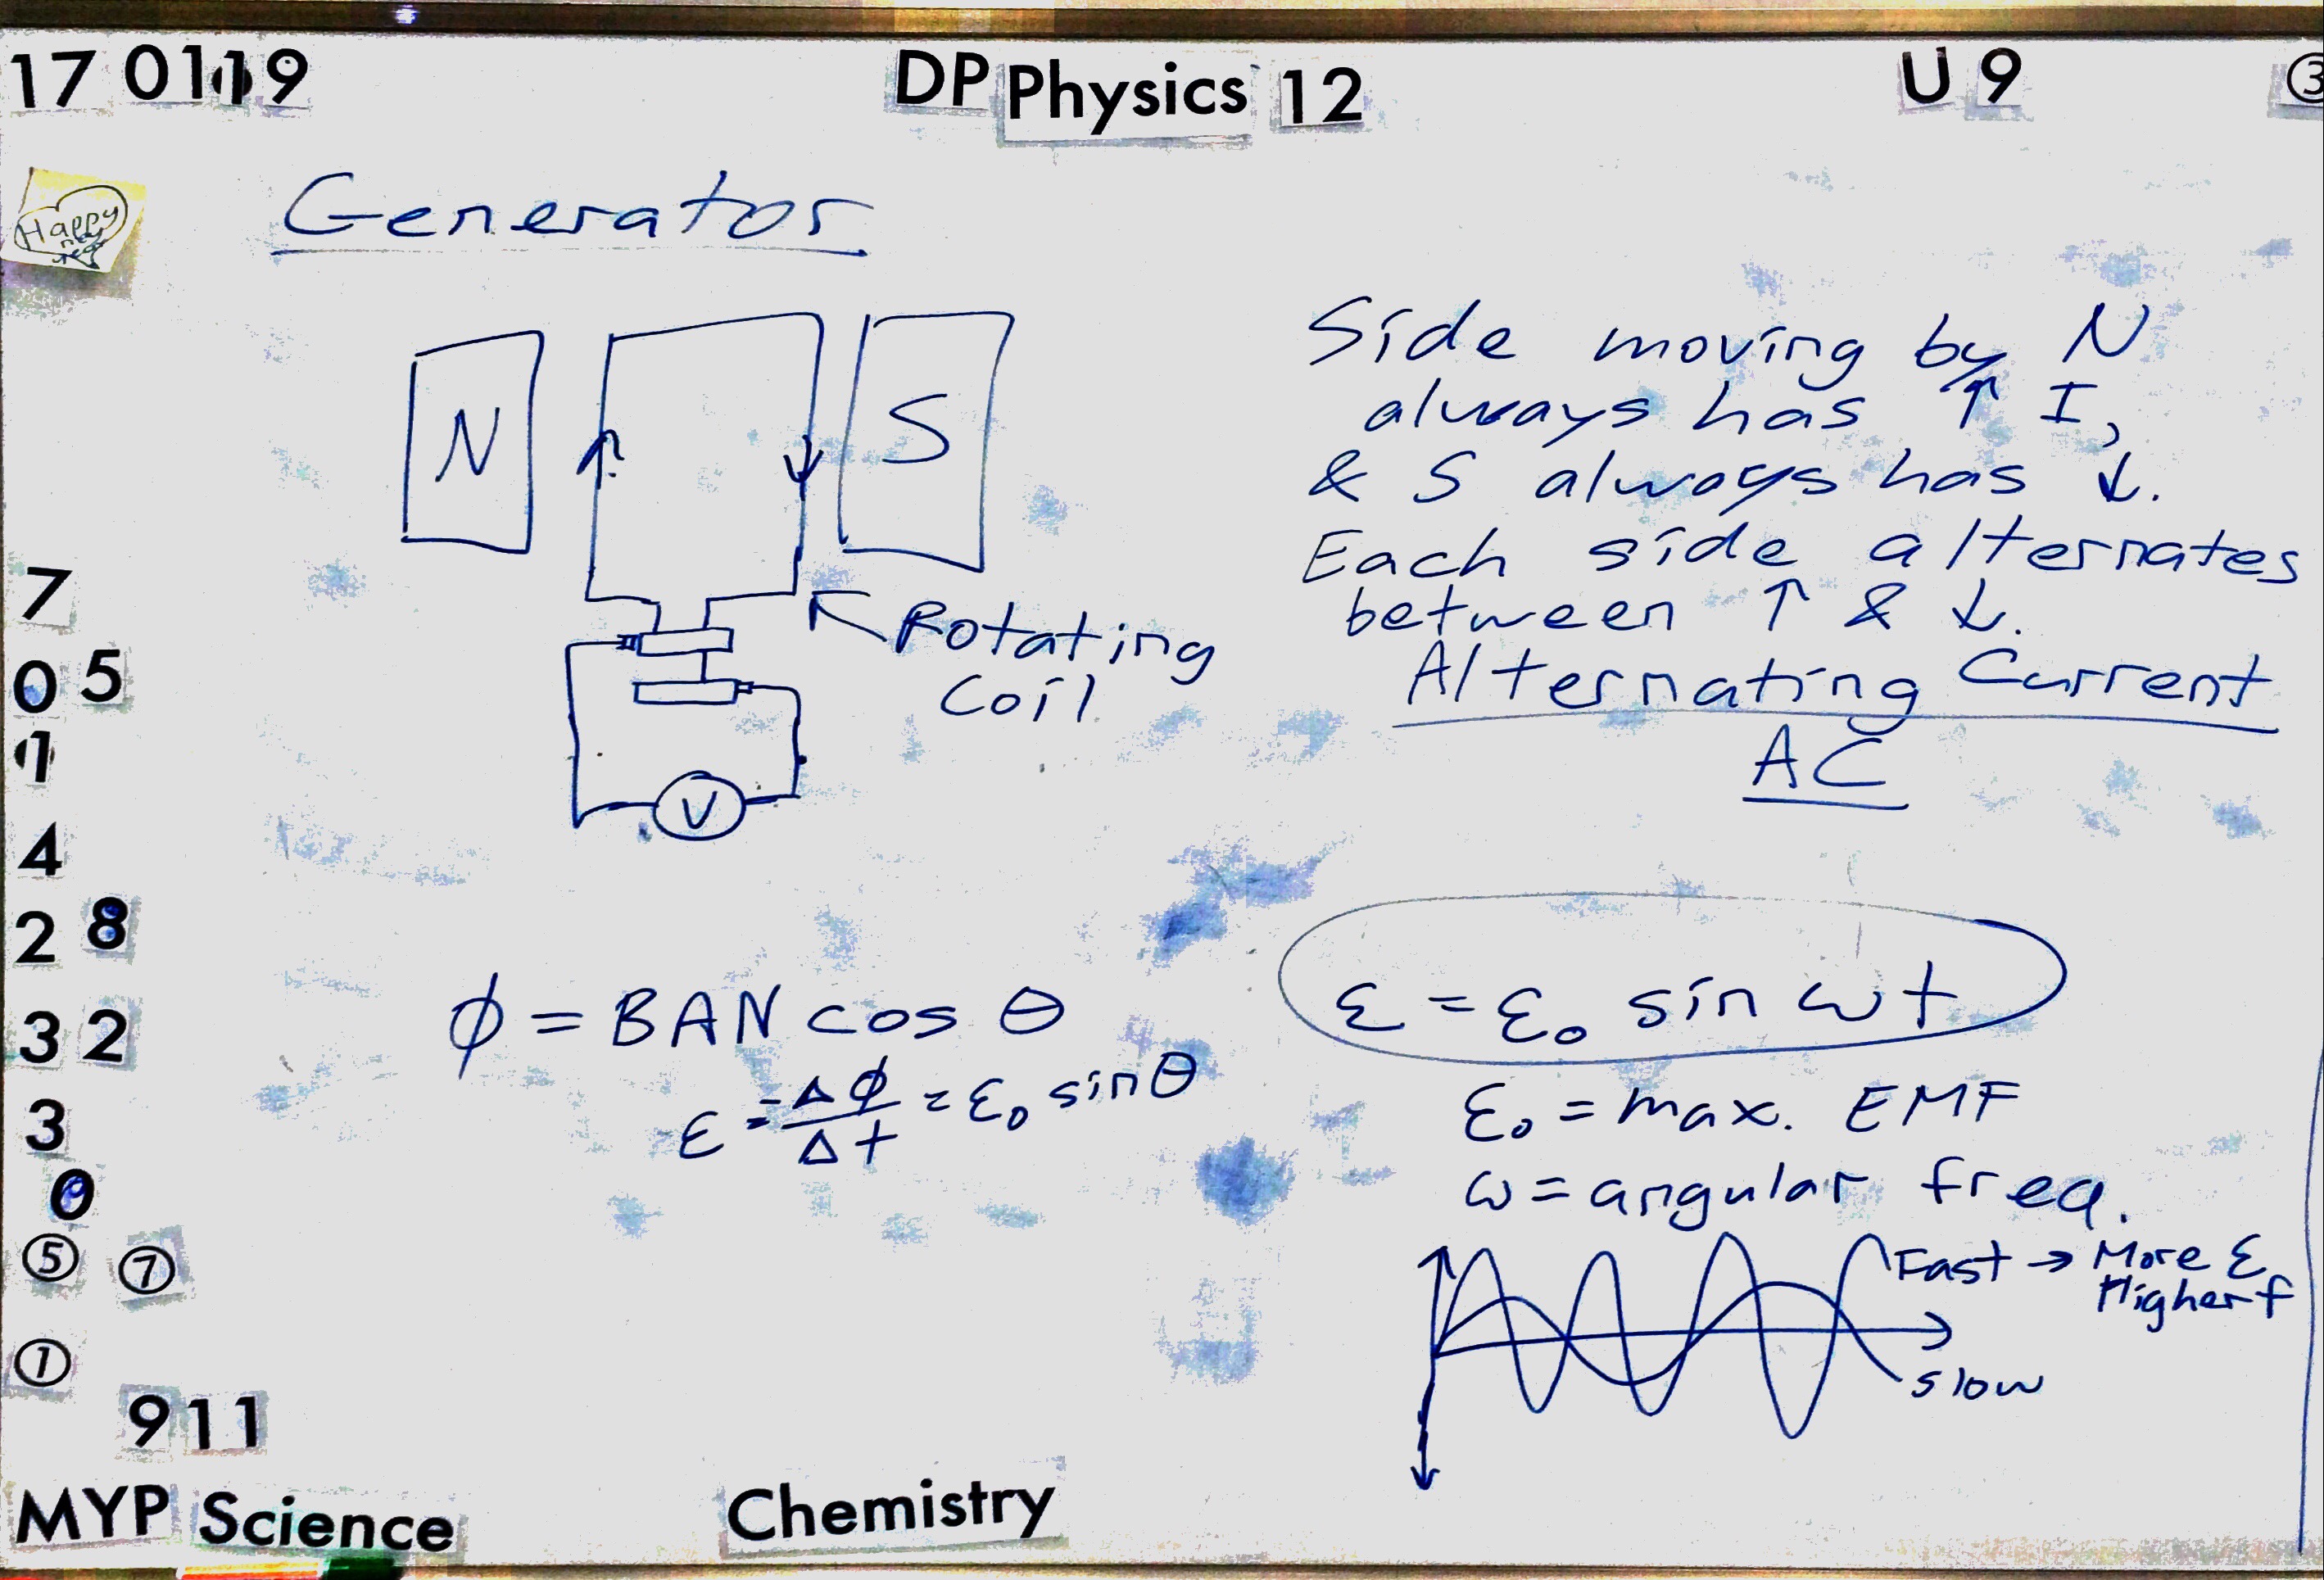 17 01119
DP Physics 12
U 9
③
Happy
new
year
Generator
N
S
Rotating
Coil
V
Side moving by N
always has ↑ I,
& S always has ↓.
Each side alternates
between ↑ & ↓.
Alternating Current
AC
ϕ = BAN cos θ
ε = -Δϕ/Δt = ε₀ sin θ
ε = ε₀ sin ωt
ε₀ = max. EMF
ω = angular freq.
Fast → More ε
Higher f
slow
7
0 5
1
4
2 8
3 2
3
0
⑤ ⑦
①
911
MYP Science
Chemistry